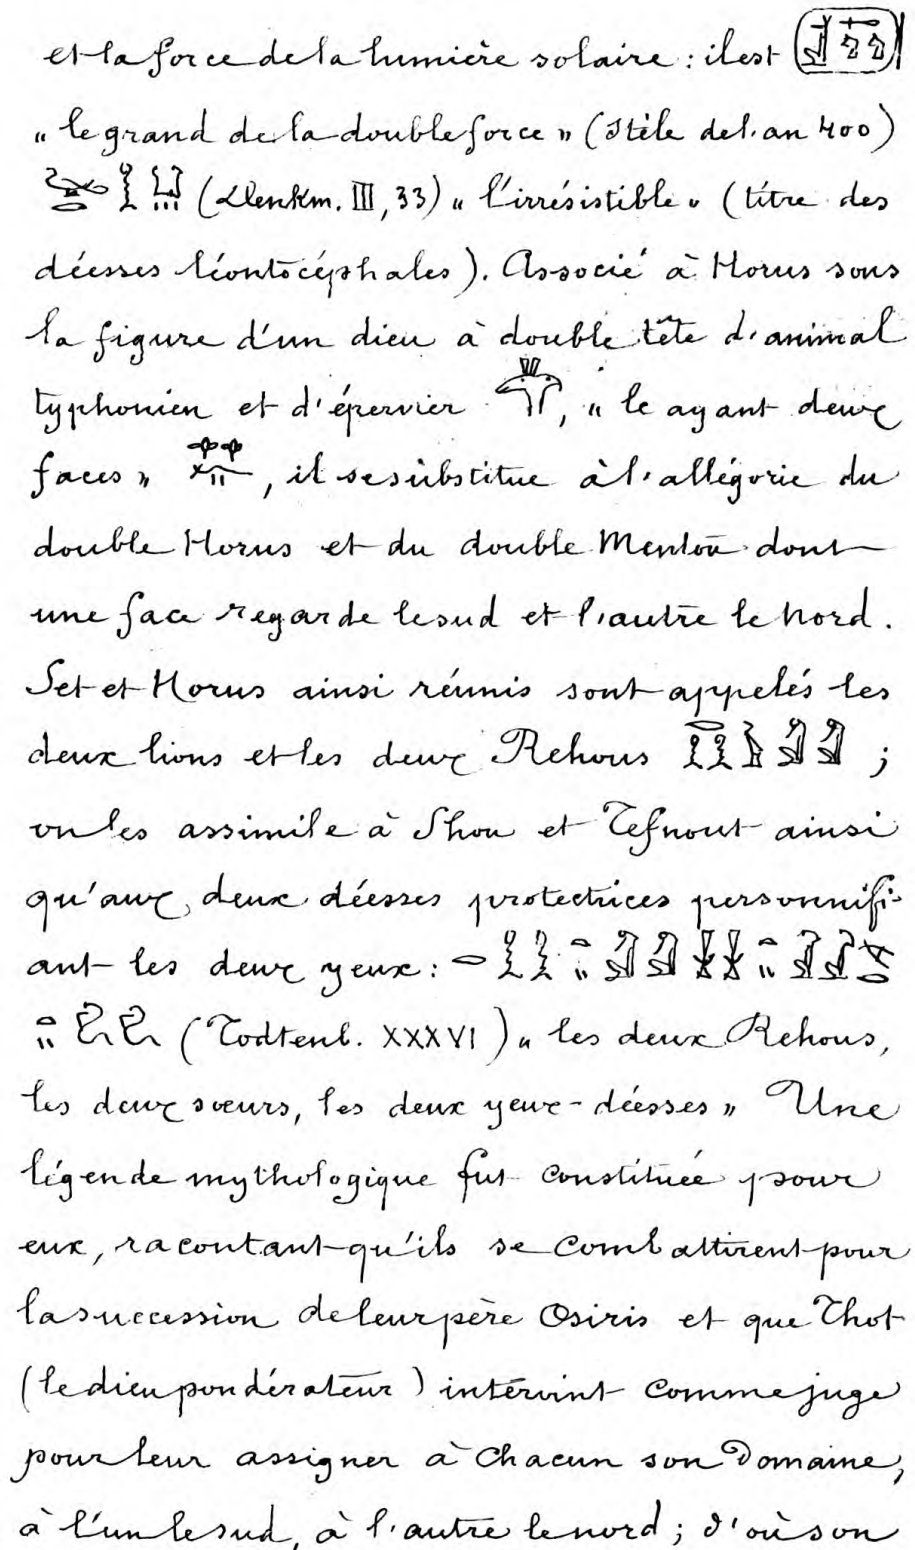 et la force de la lumière solaire : il est
« le grand de la double force » (Stèle de l'an 400)
(Denkm. III, 33) « l'irrésistible » (titre des
déesses léontocéphales). Associé à Horus sous
la figure d'un dieu à double tête d'animal
typhonien et d'épervier , « le ayant deux
faces » , il se substitue à l'allégorie du
double Horus et du double Mentou dont
une face regarde le sud et l'autre le nord.
Set et Horus ainsi réunis sont appelés les
deux lions et les deux Rehous ;
on les assimile à Shou et Tefnout ainsi
qu'aux deux déesses protectrices personnifi-
ant les deux yeux :
(Todtenb. XXXVI) « les deux Rehous,
les deux sœurs, les deux yeux-déesses » Une
légende mythologique fut constituée pour
eux, racontant qu'ils se combattirent pour
la succession de leur père Osiris et que Thot
(le dieu pondérateur) intervint comme juge
pour leur assigner à chacun son Domaine,
à l'un le sud, à l'autre le nord ; d'où son